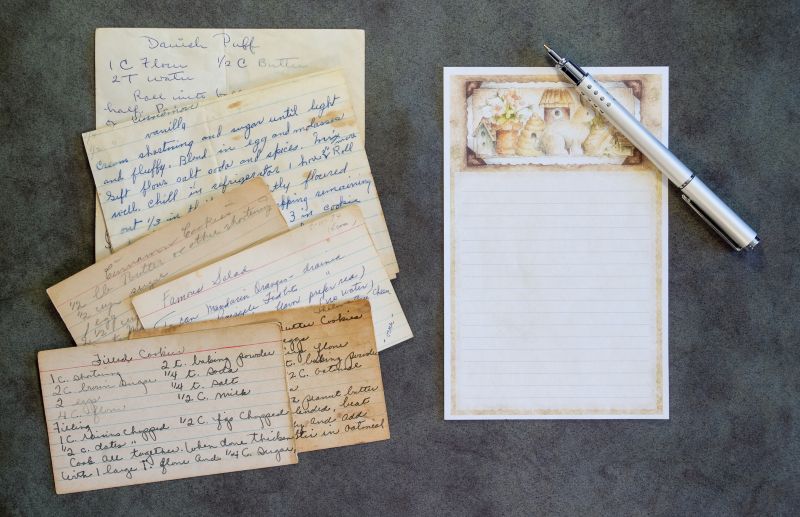 Danish Puff
1 C Flour 1/2 C Butter
2 T water
Roll into b
half. P
or cinnamon
vanilla
Cream shortning and sugar until light
and fluffy. Blend in egg and molasses
Sift flour salt soda and spices. Mix
well. Chill in refrigerator 1 hour Roll
out 1/3 in th tly floured
pping remaining
3 in cookie
Cinnamon Cookies
1/2 lb Butter or other shortning
1/2 cup sugar
1 egg
Famous Salad
can Mandarin Oranges - drained
Pineapple Tidbits "
(flavor preferred)
(no water)
Cheese
Butter Cookies
eggs
flour
t. baking powder
2 C. oatmeal
peanut butter
blended, beat
and add
in oatmeal
Filled Cookies
1 C. shortning 2 t. baking powder
2 C brown sugar 1/4 t. soda
2 eggs 1/4 t. salt
4 C. flour 1/2 C. milk
Filling
1 C. raisins chopped 1/2 C. figs chopped
1/2 C. dates "
Cook all together. When done thicken
with 1 large T. flour and 1/4 C. sugar,